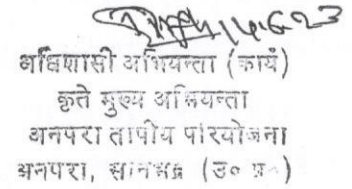 14.6.23
अधिशासी अभियन्ता (कार्य)
कृते मुख्य अभियन्ता
अनपरा तापीय परियोजना
अनपरा, सोनभद्र (उ० प्र०)